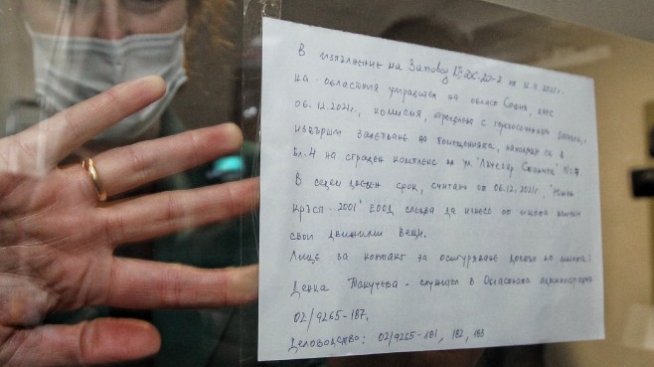 В изпълнение на Заповед № ОХ-20-2 от
на областния управител на област София, днес
06.12.2021г., комисия, определена с горепосочената заповед,
извърши запечатване на помещенията, находящи се в
бл. 4 на сграден комплекс на ул. "Лъчезар Станчев" №
В седем дневен срок, считано от 06.12.2021г.,
кръст - 2001" ЕООД следва да изнесе от имота всички
свои движими вещи.
Лице за контакт за осигуряване достъп до имота:
Денка - служител в Областната администрация
02/9265-187.
Деловодство: 02/9265-181, 182, 183